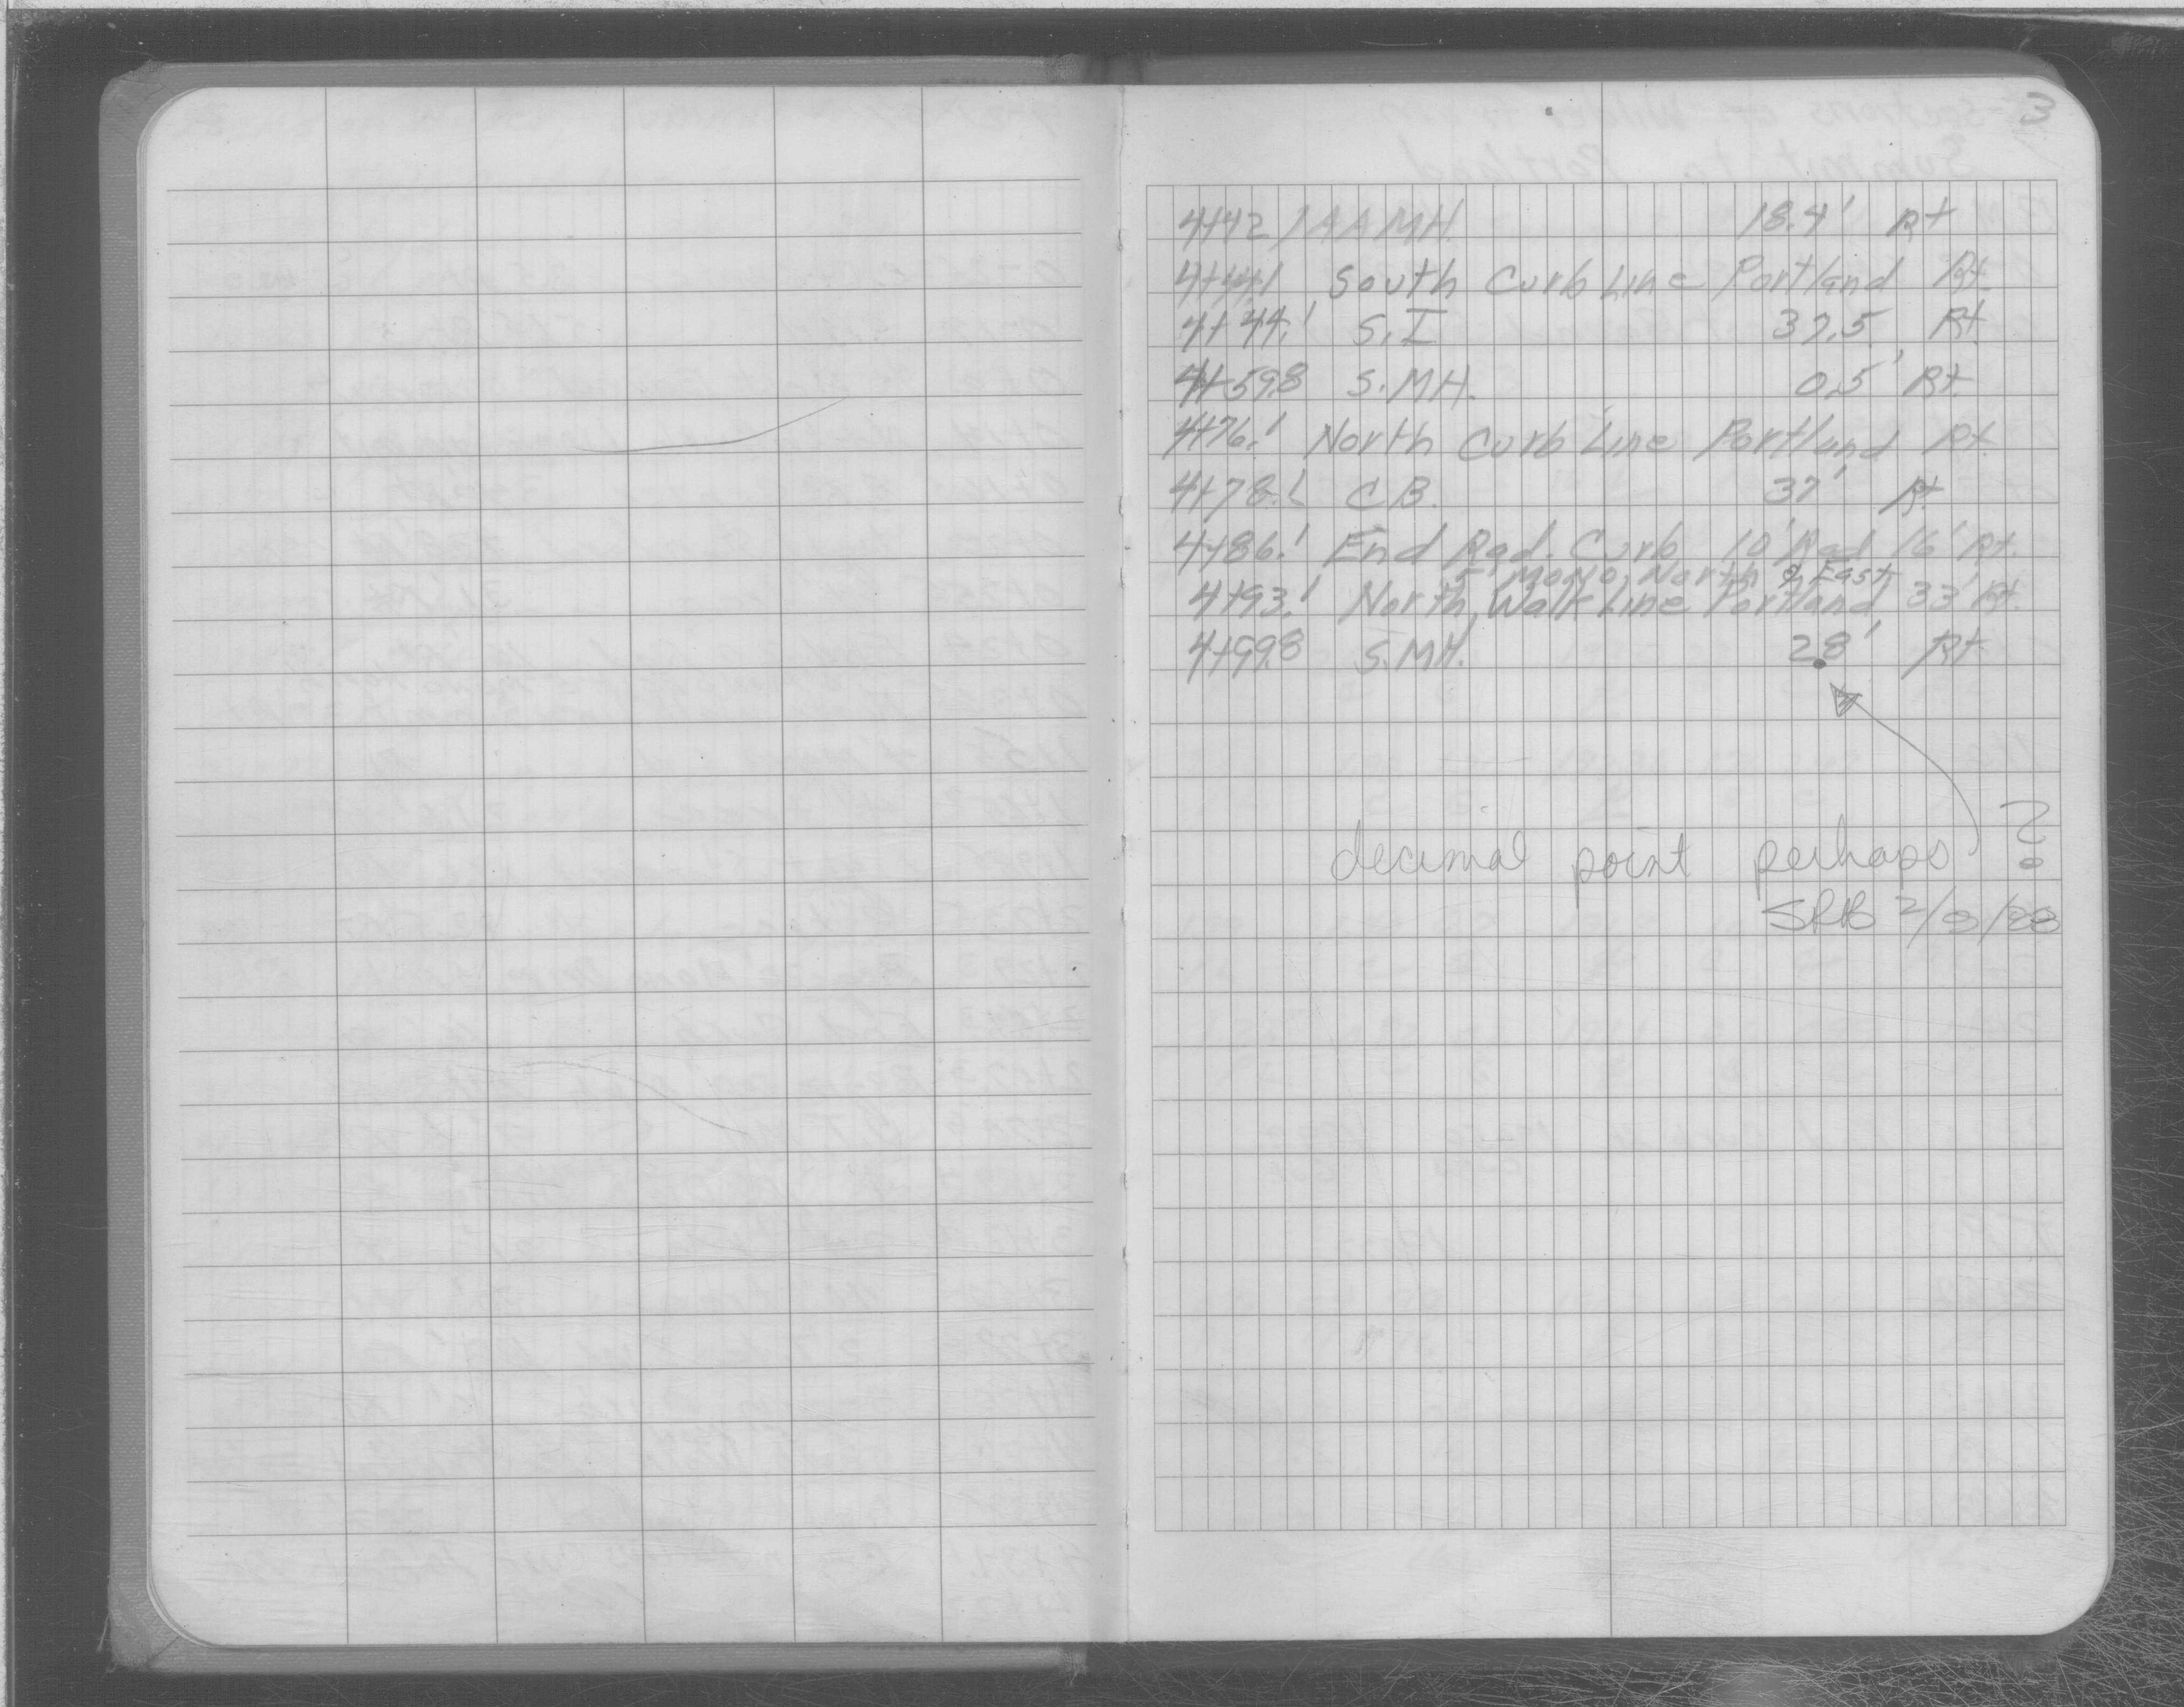 3
4+42 1AA MH. 18.4' Rt
4+44.' South Curb Line Portland Rt.
4+44.' S.I 37.5 Rt
4+59.8 S.MH. 0.5' Rt.
4+76.' North Curb Line Portland Rt.
4+78.' C.B. 37' Rt.
4+86.' End Rad. Curb 10' Rad 16' Rt.
5' mono. North & East
4+93.' North Walk Line Portland 33' Rt.
4+99.8 S.MH. 2.8' Rt
decimal point perhaps ?
2/9/88